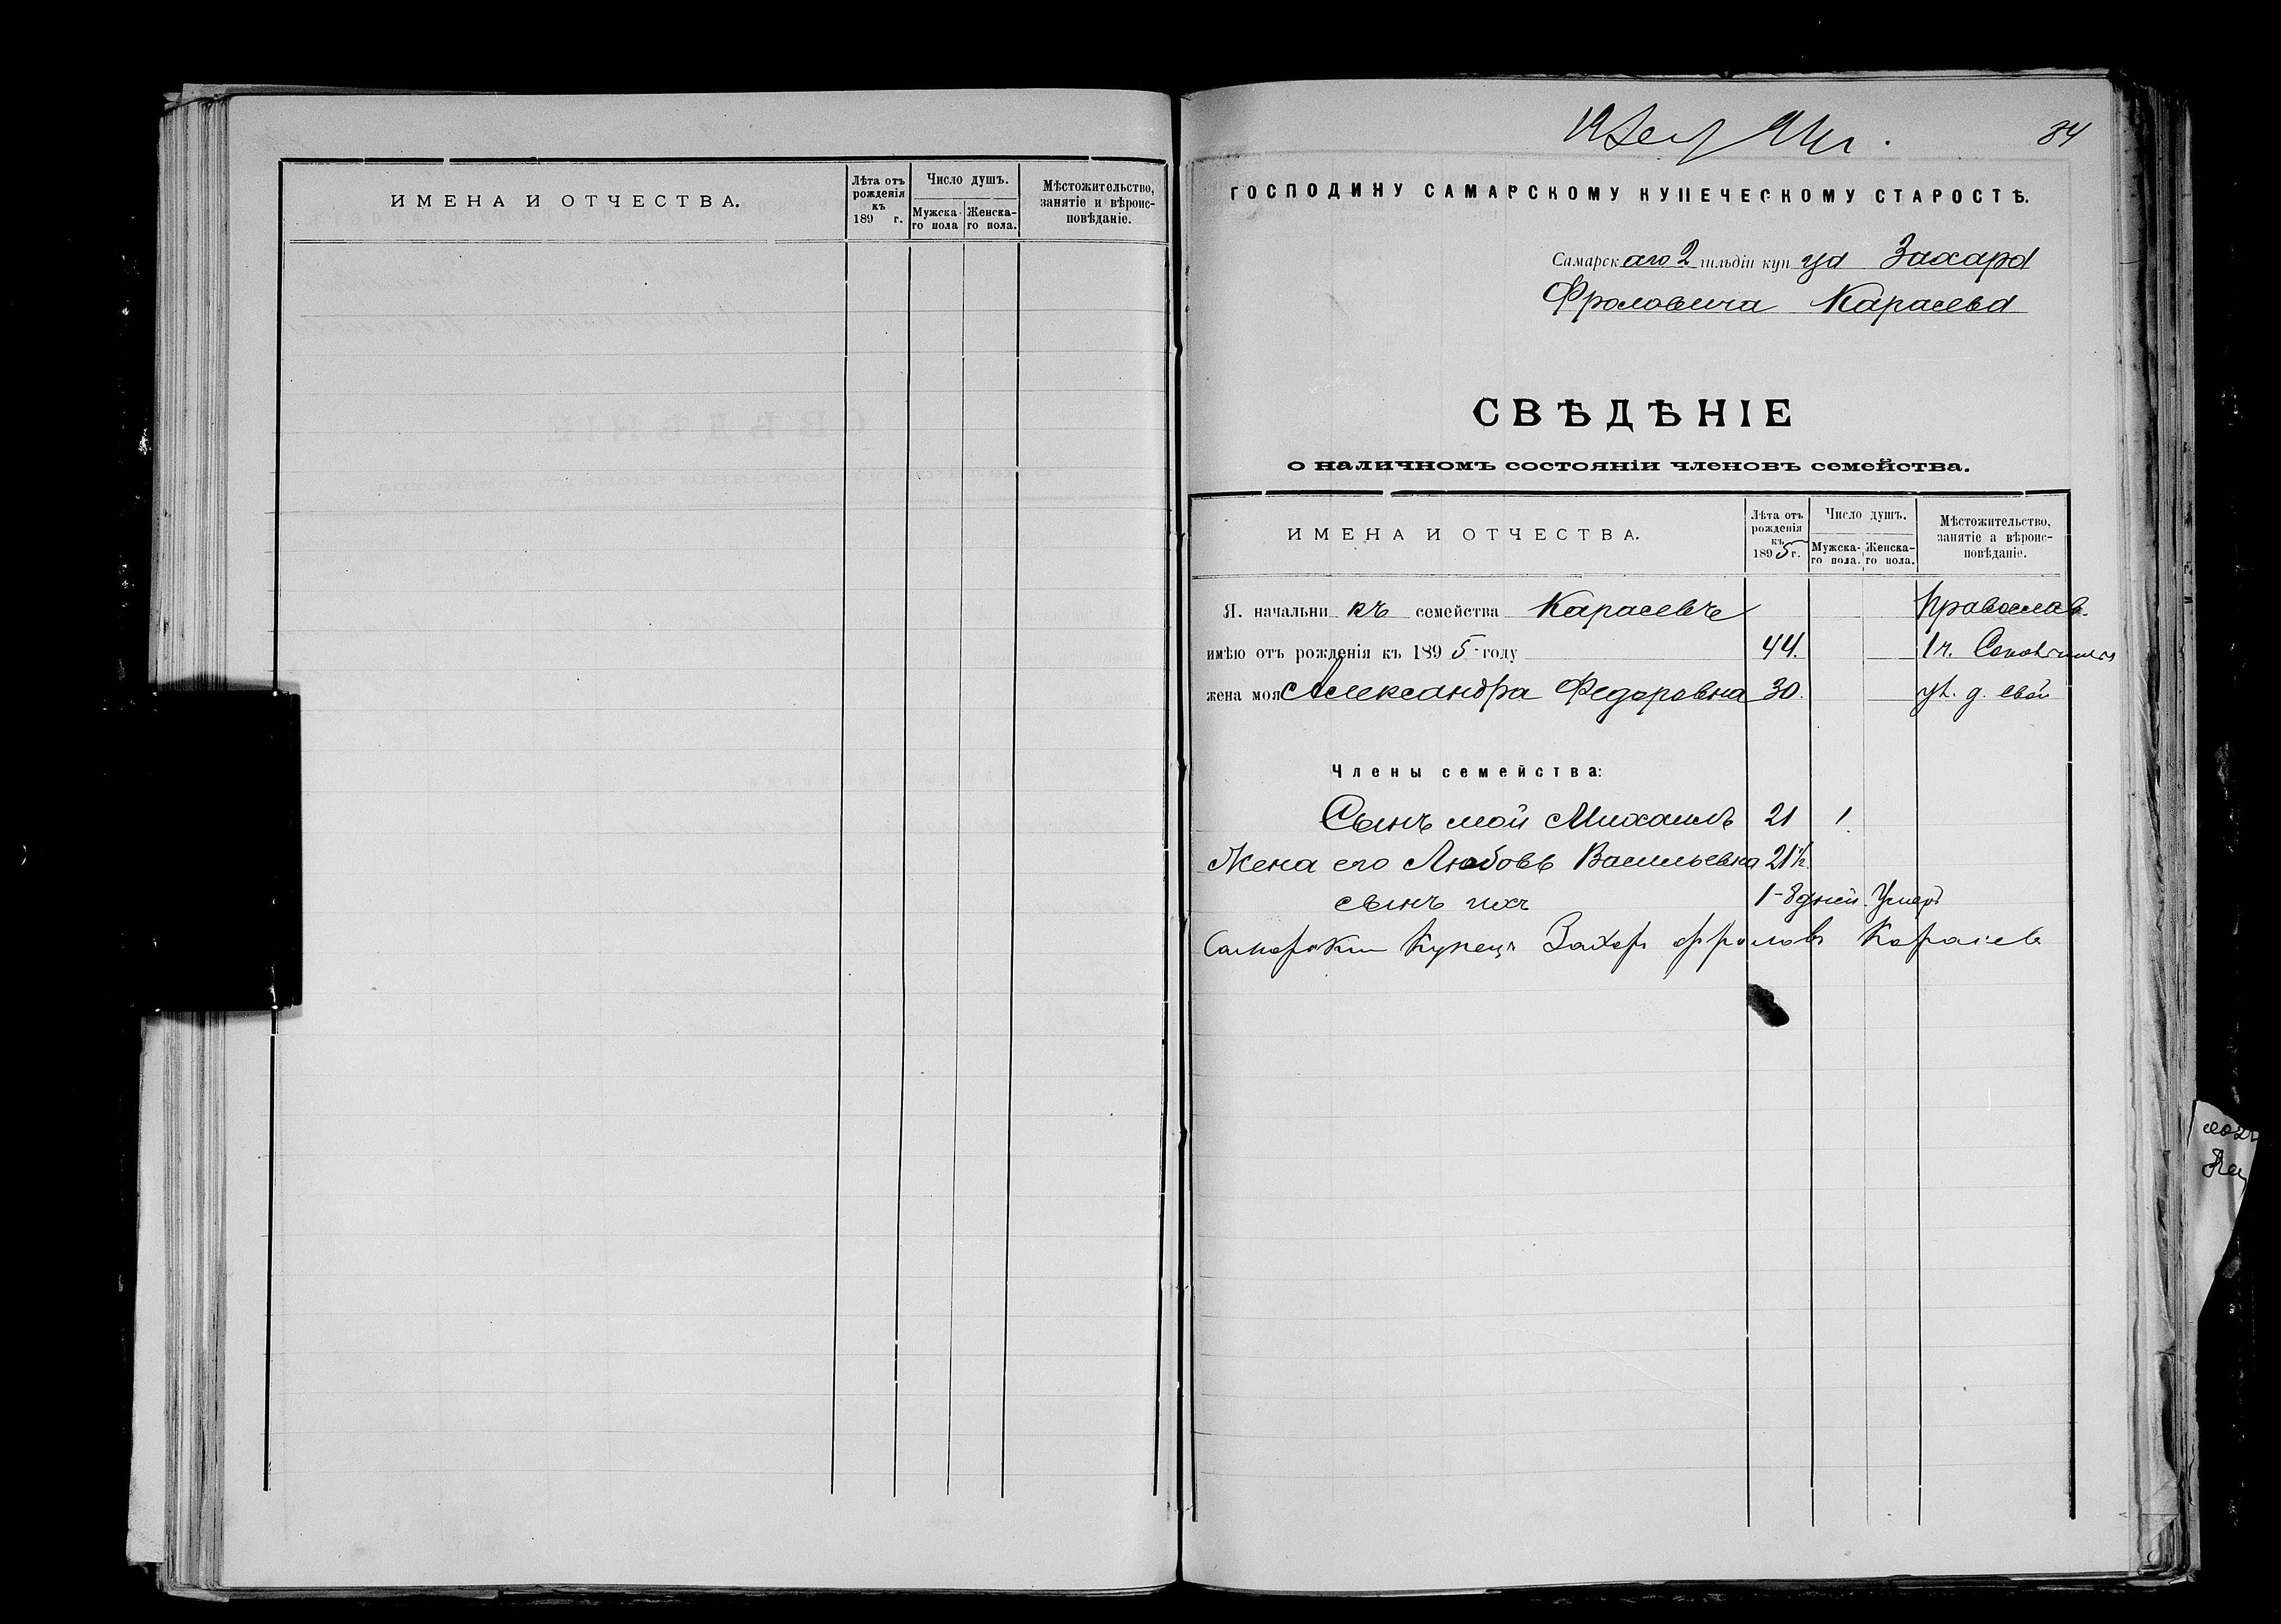 ИМЕНА И ОТЧЕСТВА.
Лѣта отъ рожденія къ 189 г.
Число душъ.
Мужска-го пола
Женска-го пола.
Мѣстожительство, занятіе и вѣроис-повѣданіе.
84
ГОСПОДИНУ САМАРСКОМУ КУПЕЧЕСКОМУ СТАРОСТѢ.
Самарскаго 2 гильдіи купца Захара
Фроловича Карасева
СВѢДѢНІЕ
о наличномъ состояніи членовъ семейства.
ИМЕНА И ОТЧЕСТВА.
Лѣта отъ рожденія къ 1895 г.
Число душъ.
Мужска-го пола.
Женска-го пола.
Мѣстожительство, занятіе а вѣроис-повѣданіе.
Я. начальникъ семейства Карасевъ Православ.
имѣю отъ рожденія къ 1895 году 44. 1 ч.
жена моя Александра Федоровна 30. д. свой
Члены семейства:
Сынъ мой Михаилъ 21 1.
Жена его Любовь Васильевна 21 1/2
сынъ ихъ 1 - 8 дней. Умеръ
Самарскій Купецъ Захаръ Фроловъ Карасев